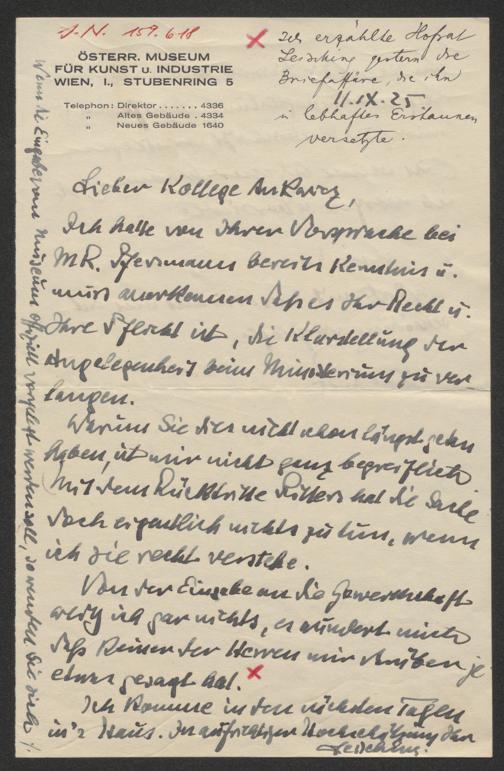 J.N. 159.618
ÖSTERR. MUSEUM
FÜR KUNST U. INDUSTRIE
WIEN, I., STUBENRING 5
Telephon: Direktor ....... 4336
„ Altes Gebäude . 4334
„ Neues Gebäude 1640
Ich erzählte Hofrat
Leisching gestern die
Briefaffäre, die ihn
11.IX.25
in lebhaftes Erstaunen
versetzte.
Lieber Kollege Ankwicz,
Ich hatte von Ihrer Vorsprache bei
MR. Petermann bereits Kenntnis u.
muss anerkennen daß es Ihr Recht u.
Ihre Pflicht ist, die Klarstellung der
Angelegenheit beim Ministerium zu ver
langen.
Warum Sie dies nicht schon längst getan
haben, ist mir nicht ganz begreiflich
Mit dem Rücktritte Ritters hat die Sache
doch eigentlich nichts zu tun, wenn
ich sie recht verstehe.
Von der Eingabe an die Gewerkschaft
weiß ich gar nichts, es wundert mich
daß keiner der Herren mir darüber je
etwas gesagt hat.
Ich komme in den nächsten Tagen
in's Haus. In aufrichtiger Hochschätzung Ihr
Leisching.
Wenn die Eingabe vom Museum offiziell vorgelegt werden soll, so wenden Sie sich